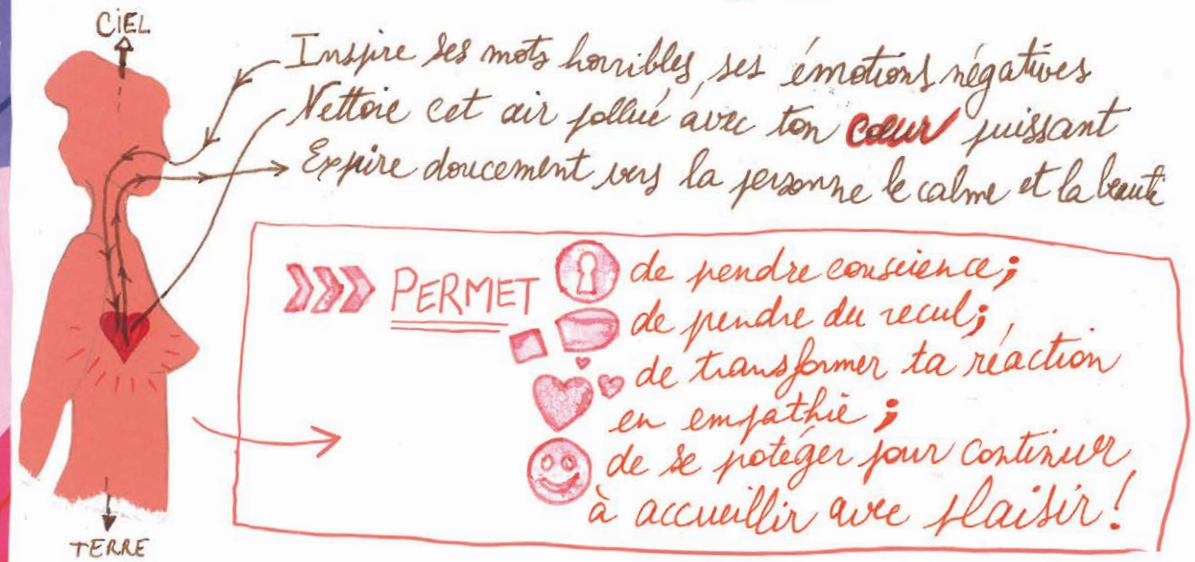 CIEL
Inspire ses mots horribles, ses émotions négatives
Nettoie cet air pollué avec ton cœur puissant
Expire doucement vers la personne le calme et la beauté
PERMET
de pendre conscience;
de pendre du recul;
de transformer ta réaction
en empathie;
de se potéger pour continuer
à accueillir avec plaisir!
TERRE